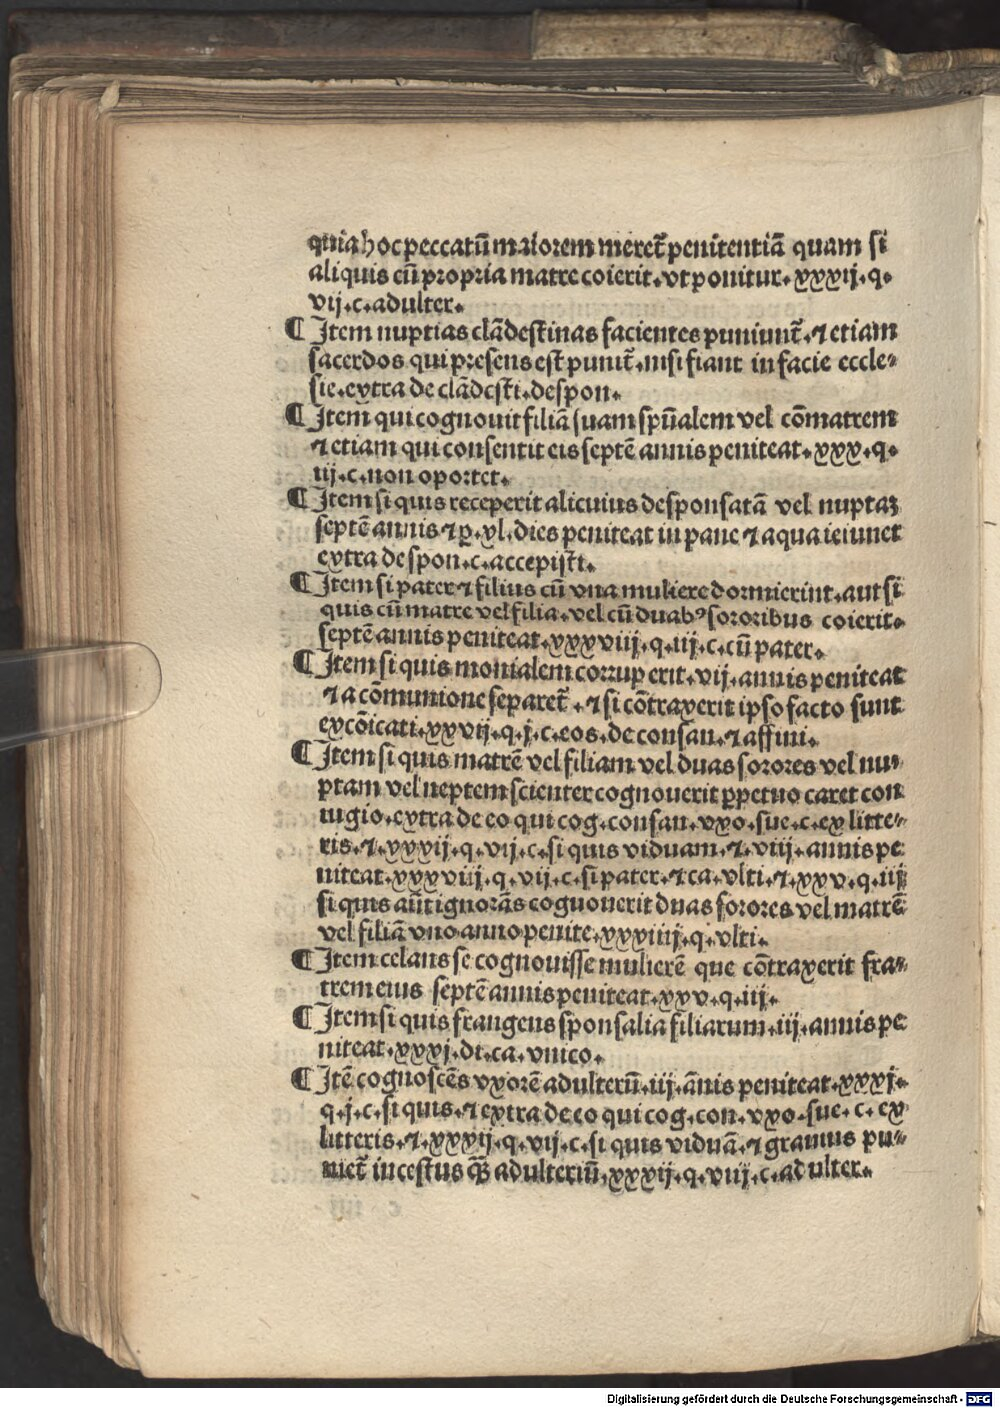 quia hoc peccatū maiorem meret̄ penitentiā quam si
aliquis cū propria matre coierit. vt ponitur. xxxij. q.
vij. c. adulter.
¶ Item nuptias clādestinas facientes puniunt̄. ⁊ etiam
sacerdos qui presens est punit̄. nisi fiant in facie eccle-
sie. extra de clādesti. despon.
¶ Item qui cognouit filiā suam spūalem vel cōmatrem
⁊ etiam qui consentit eis septē annis peniteat. xxx. q.
iij. c. non oportet.
¶ Item si quis receperit alicuius desponsatā vel nuptaꝫ
septē annis ⁊ ꝑ. xl. dies peniteat in pane ⁊ aqua ieiunet
extra de spon. c. accepisti.
¶ Item si pater ⁊ filius cū vna muliere dormierint. aut si
quis cū matre vel filia. vel cū duabꝰ sororibus coierit.
septē annis peniteat. xxxviij. q. iij. c. cū pater.
¶ Item si quis monialem corruperit. vij. annis peniteat
⁊ a cōmunione separet̄. ⁊ si cōtraxerit ipso facto sunt
excōicati. xxvij. q. j. c. eos. de consan. ⁊ affini.
¶ Item si quis matrē vel filiam vel duas sorores vel nu-
ptam vel neptem scienter cognouerit ꝑpetuo caret con
iugio. extra de eo qui cog. consan. vxo. sue. c. ex litte-
ris. ⁊. xxxij. q. vij. c. si quis viduam. ⁊. viij. annis pe
niteat. xxxviij. q. vij. c. si pater. ⁊ ca. vlti. ⁊. xxv. q. iij
si quis aūt ignorās cognouerit duas sorores vel matrē
vel filiā vno anno penite. xxxiiij. q. vlti.
¶ Item celans se cognouisse mulierē que cōtraxerit fra-
trem eius septē annis peniteat. xxv. q. iij.
¶ Item si quis frangens sponsalia filiarum. iij. annis pe
niteat. xxxj. di. ca. vnico.
¶ Itē cognoscēs vxorē adulterū. iij. ānis peniteat. xxxj.
q. j. c. si quis. ⁊ extra de eo qui cog. con. vxo. sue. c. ex
litteris. ⁊. xxxij. q. vij. c. si quis viduā. ⁊ grauius pu-
niet̄ incestus ꝙ̄ adulteriū. xxxij. q. vij. c. adulter.
Digitalisierung gefördert durch die Deutsche Forschungsgemeinschaft - DFG